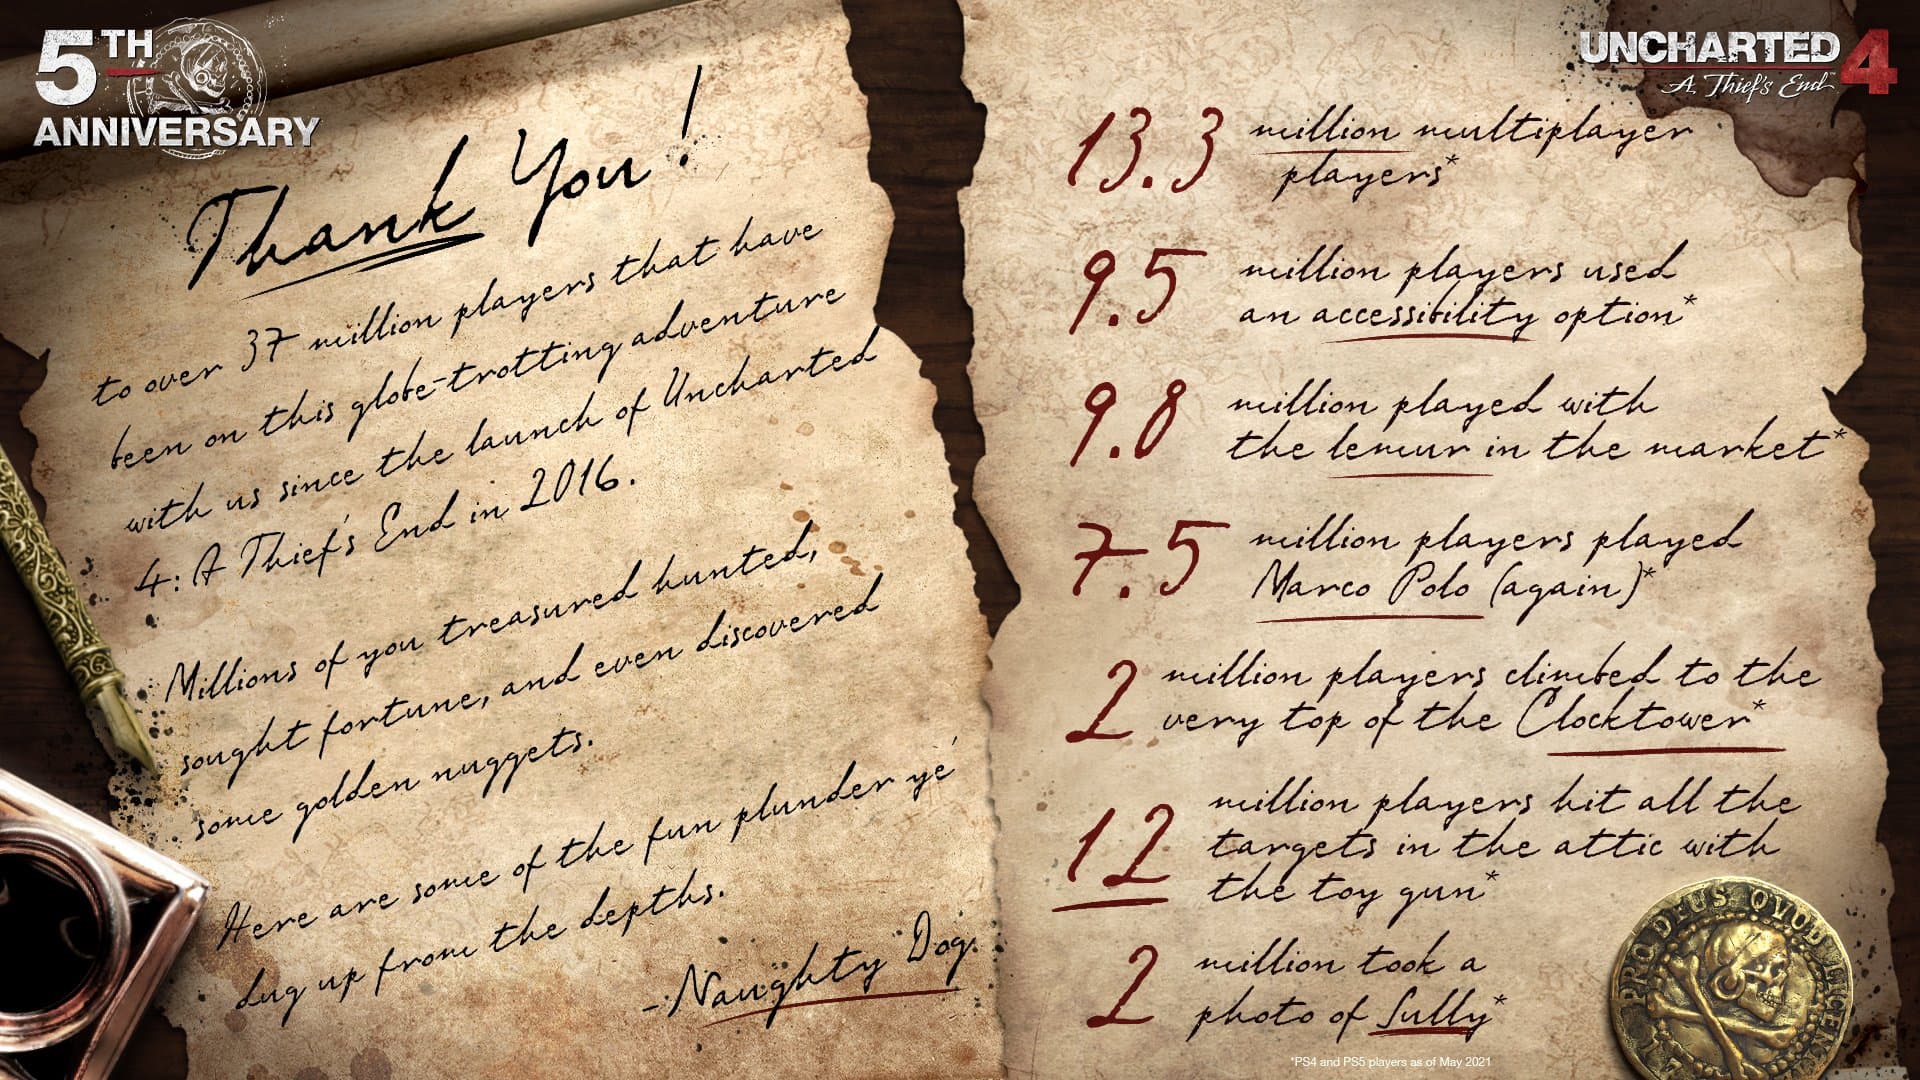 5TH
ANNIVERSARY
Thank You!
to over 37 million players that have
been on this globe-trotting adventure
with us since the launch of Uncharted
4: A Thief's End in 2016.
Millions of you treasured hunted,
sought fortune, and even discovered
some golden nuggets.
Here are some of the fun plunder ye'
dug up from the depths.
-Naughty Dog.
UNCHARTED 4
A Thief's End™
13.3 million multiplayer
players*
9.5 million players used
an accessibility option*
9.8 million played with
the lemur in the market*
7.5 million players played
Marco Polo (again)*
2 million players climbed to the
very top of the Clocktower*
12 million players hit all the
targets in the attic with
the toy gun*
2 million took a
photo of Sully*
PRO DEUS QVOD LICENTIA
*PS4 and PS5 players as of May 2021